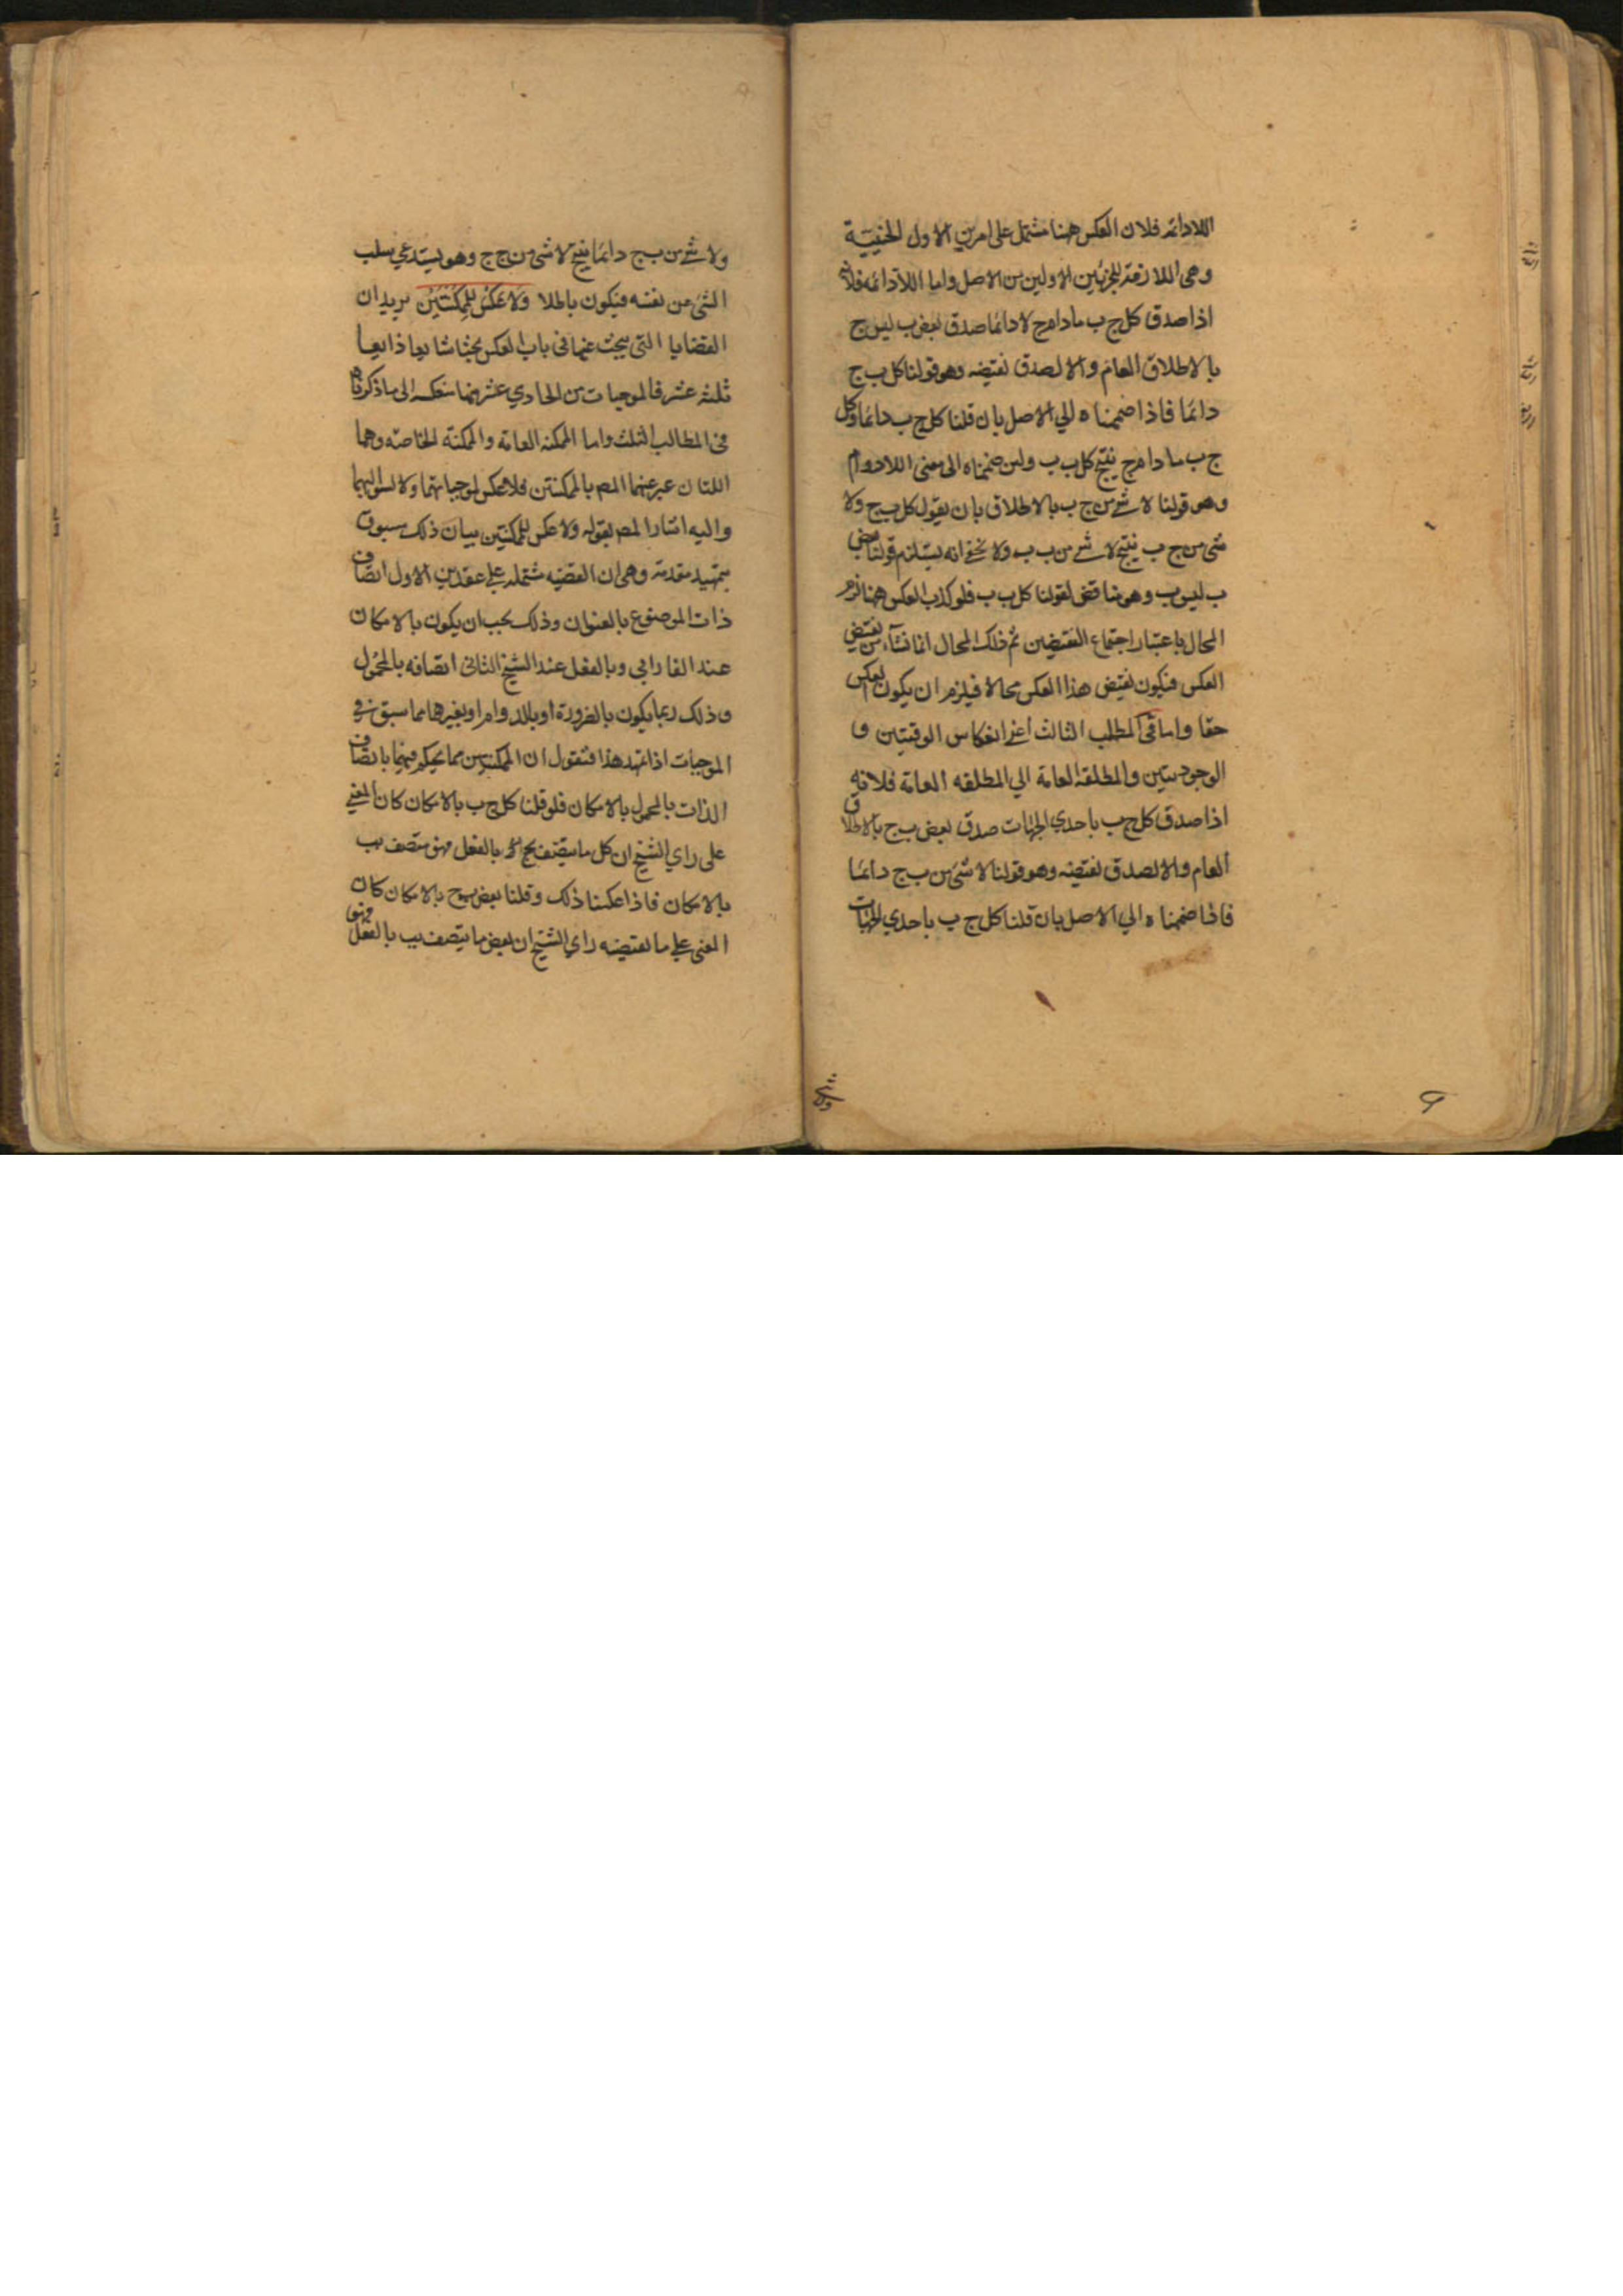 اللادائمه فلان العكس ههنا مشتمل على امرين الاول الحينية
وهى اللازمة للجزئين الاولين من الاصل واما اللادائمه فلانه
اذا صدق كل ج ب ما دام ج لا دائما صدق بعض ب ليس ج
بالاطلاق العام والا لصدق نقيضه وهو قولنا كل ب ج
دائما فاذا ضممناه الي الاصل بان قلنا كل ج ب دائما وكل
ج ب ما دام ج ينتج كل ب ب ولين ضممناه الى معنى اللادوام
وهو قولنا لا شئ من ج ب بالاطلاق بان يقول كل ب ج ولا
شئ من ج ب ينتج لا شئ من ب ب ولا يخفى انه يستلزم قولنا بعض
ب ليس ب وهو مناقض لقولنا كل ب ب فلو كذب العكس ههنا لزم
المحال باعتبار اجتماع النقيضين ثم ذلك المحال انما نشاء من نقيض
العكس فيكون نقيض هذا العكس محالا فيلزم ان يكون العكس
حقا واما فى المطلب الثالث اعنى انعكاس الوقتيتين و
الوجوديتين والمطلقه العامة الي المطلقه العامة فلانه
اذا صدق كل ج ب باحدي الجهات صدق بعض ب ج بالاطلاق
العام والا لصدق نقيضه وهو قولنا لا شئ من ب ج دائما
فاذا ضممناه الي الاصل بان قلنا كل ج ب باحدي الجهات
ولا شئ من ب ج دائما ينتج لا شئ من ج ج وهو يستدعي سلب
الشئ عن نفسه فيكون باطلا ولا عكس للممكنتين يريد ان
القضايا التى يبحث عنها فى باب العكس بحثا شايعا ذايعا
ثلثه عشر فالموجبات من الحادي عشر منها منعكسه الى ما ذكرناه
فى المطالب الثلث واما الممكنه العامة والممكنة الخاصه وهما
اللتان عبر عنهما المص بالممكنتين فلا عكس لموجباتهما ولا لسوالبهما
واليه اشار المص بقوله ولا عكس للممكنتين بيان ذلك مسبوق
بتمهيد مقدمة وهى ان القضيه مشتمله على عقدين الاول اتصاف
ذات الموضوع بالعنوان وذلك يجب ان يكون بالامكان
عند الفارابي وبالفعل عند الشيخ الثانى اتصافه بالمحمول
وذلك ربما يكون بالضرورة او بالدوام او بغيرهما مما سبق فى
الموجبات اذا تمهد هذا فنقول ان الممكنتين مما يحكم فيهما باتصاف
الذات بالمحمول بالامكان فلو قلنا كل ج ب بالامكان كان المعنى
على راي الشيخ ان كل ما يتصف بج بالفعل فهو متصف بب
بالامكان فاذا عكسنا ذلك وقلنا بعض ب ج بالامكان كان
المعنى على ما يقتضيه راي الشيخ ان بعض ما يتصف بب بالفعل فهو